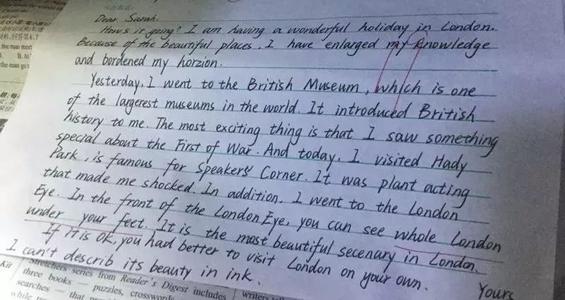 Dear Sarah.
How's it going? I am having a wonderful holiday in London.
Because of the beautiful places, I have enlarged my knowledge
and bordened my horzion.
Yesterday, I went to the British Museum, which is one
of the largerest museums in the world. It introduced British
history to me. The most exciting thing is that I saw something
special about the First of War. And today, I visited Hady
Park, is famous for Speakers' Corner. It was plant acting
that made me shocked. In addition, I went to the London
Eye. In the front of the London Eye, you can see whole London
under your feet. It is the most beautiful secenary in London.
If it is ok, you had better to visit London on your own.
I can't describ its beauty in ink.
Yours
series from Reader's Digest includes
three books — puzzles,
searches —